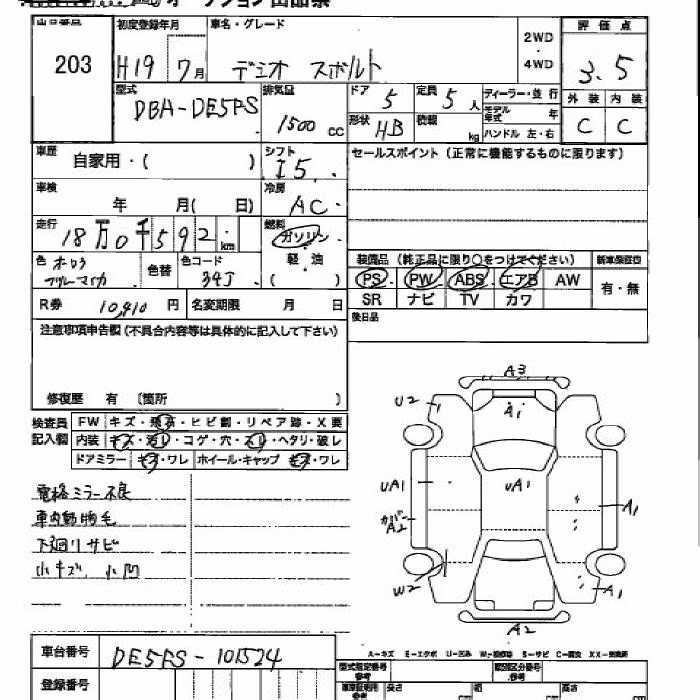 オークション出品票
出品番号 初度登録年月 車名・グレード 2WD・4WD 評価点
203 H19 7月 デミオ スポルト 3.5
型式 排気量 ドア 定員 ディーラー・並行 外装 内装
DBA-DE5FS 1500cc 5 5人 モデル年式 年 C C
形状 HB 積載 kg ハンドル 左・右
車歴 自家用・( ) シフト I5 セールスポイント (正常に機能するものに限ります)
車検 年 月( 日) 冷房 AC
走行 18万0千592km 燃料 ガソリン・軽油( )
色 色替 色コード 34J 装備品 (純正品に限り○をつけてください) 新車保証書
PS PW ABS エアB AW 有・無
SR ナビ TV カワ
R券 10,410円 名変期限 月 日 後日品
注意事項申告欄 (不具合内容等は具体的に記入して下さい)
修復歴 有 〔箇所 〕
検査員記入欄 FW キズ・飛石・ヒビ割・リペア跡・X要
内装 キズ・汚レ・コゲ・穴・スレ・ヘタリ・破レ
ドアミラー キズ・ワレ ホイール・キャップ キズ・ワレ
電格ミラー不良
車内動物毛
下廻りサビ
小キズ、小凹
A3
U2 A1
UA1 UA1 A1
カバー A2
W2 A1
A2
A-キズ E-エクボ U-凹み W-補修跡 S-サビ C-腐食 XX-交換済
車台番号 DE5FS-101524
登録番号
型式指定番号 類別区分番号
長さ cm 幅 cm 高さ cm